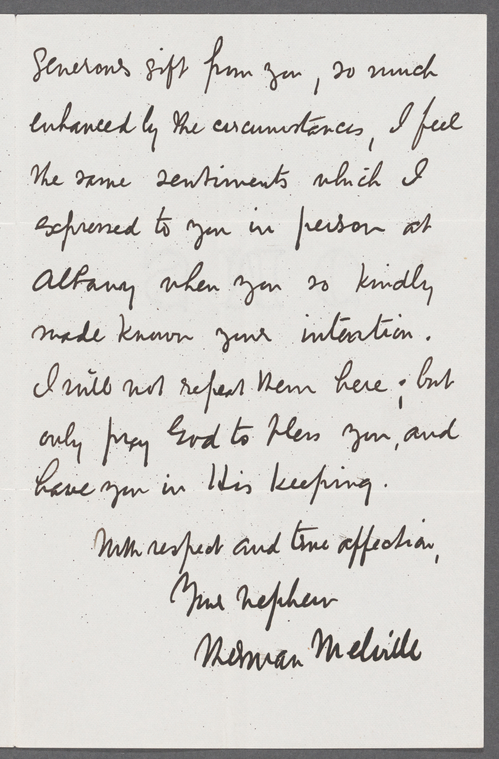 generous gift from you, so much
enhanced by the circumstances, I feel
the same sentiments which I
expressed to you in person at
Albany when you so kindly
made known your intention.
I will not repeat them here; but
only pray God to bless you, and
have you in His keeping.
With respect and true affection,
Your nephew
Herman Melville